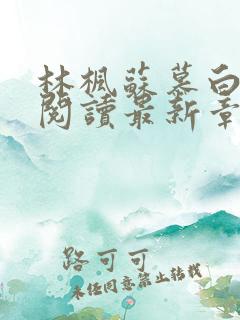 林楓蘇慕白
閱讀最新章
路可可
未经同意禁止转载